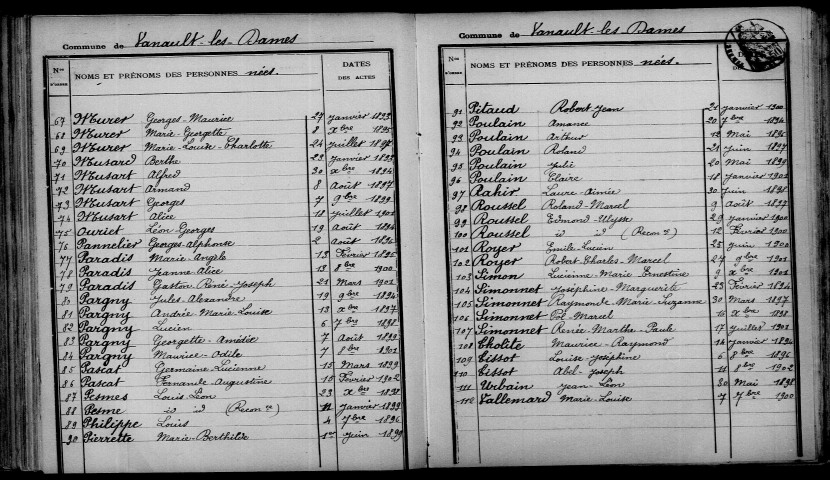 Commune de Vanault-les-Dames
Nos D'ORDRE NOMS ET PRÉNOMS DES PERSONNES nées. DATES DES ACTES
67 Murer Georges-Maurice 27 janvier 1893
68 Murer Marie-Georgette 8 Xbre 1895
69 Murer Marie-Louise-Charlotte 24 juillet 1897
70 Musard Berthe 23 janvier 1893
71 Musart Alfred 20 Xbre 1894
72 Musart Armand 8 Août 1897
73 Musart Georges 7 9bre 1899
74 Musart Alice 18 juillet 1901
75 Ouriet Léon-Georges 19 Août 1894
76 Pannelier Georges-Alphonse 2 Août 1896
77 Paradis Marie-Angèle 13 Février 1895
78 Paradis Jeanne-Alice 13 8bre 1900
79 Paradis Gaston-René-Joseph 21 Mars 1901
80 Pargny Jules-Alexandre 19 9bre 1894
81 Pargny Andrée-Marie-Louise 13 Xbre 1897
82 Pargny Lucien 6 7bre 1898
83 Pargny Georgette-Amédée 7 Août 1899
84 Pargny Maurice-Odile 7 8bre 1901
85 Pascat Germaine-Lucienne 15 Mars 1899
86 Pascat Fernande-Augustine 15 Février 1902
87 Pesmes Louis-Léon 23 Xbre 1898
88 Pesme id id (Recon ce) 11 janvier 1899
89 Philippe Louis 4 7bre 1896
90 Pierrette Marie-Berthilde 1er juin 1899
Commune de Vanault-les-Dames
Nos D'ORDRE NOMS ET PRÉNOMS DES PERSONNES nées.
91 Pitaud Robert-Jean 21 janvier 1900
92 Poulain Amance 20 7bre 1894
93 Poulain Arthur 12 Mai 1896
94 Poulain Roland 21 juin 1897
95 Poulain Julie 20 Mai 1899
96 Poulain Claire 18 janvier 1901
97 Rahir Laure-Aimée 30 juin 1898
98 Roussel Roland-Marcel 9 Août 1897
99 Roussel Edmond-Ulysse 29 janvier 1900
100 Roussel id id (Recon ce) 12 Février 1900
101 Royer Emile-Lucien 25 juin 1900
102 Royer Robert-Charles-Marcel 27 9bre 1901
103 Simon Lucienne-Marie-Ernestine 9 Xbre 1901
104 Simonnet Joséphine-Marguerite 23 Février 1894
105 Simonnet Raymonde-Marie-Suzanne 30 Mars 1897
106 Simonnet Pol-Marcel 16 Xbre 1898
107 Simonnet Renée-Marthe-Paule 17 juillet 1901
108 Tholite Maurice-Raymond 14 janvier 1894
109 Tissot Louise-Joséphine 6 8bre 1896
110 Tissot Abel-Joseph 11 8bre 1902
111 Urbain Jean-Léon 30 Mai 1898
112 Vallemard Marie-Louise 7 7bre 1900